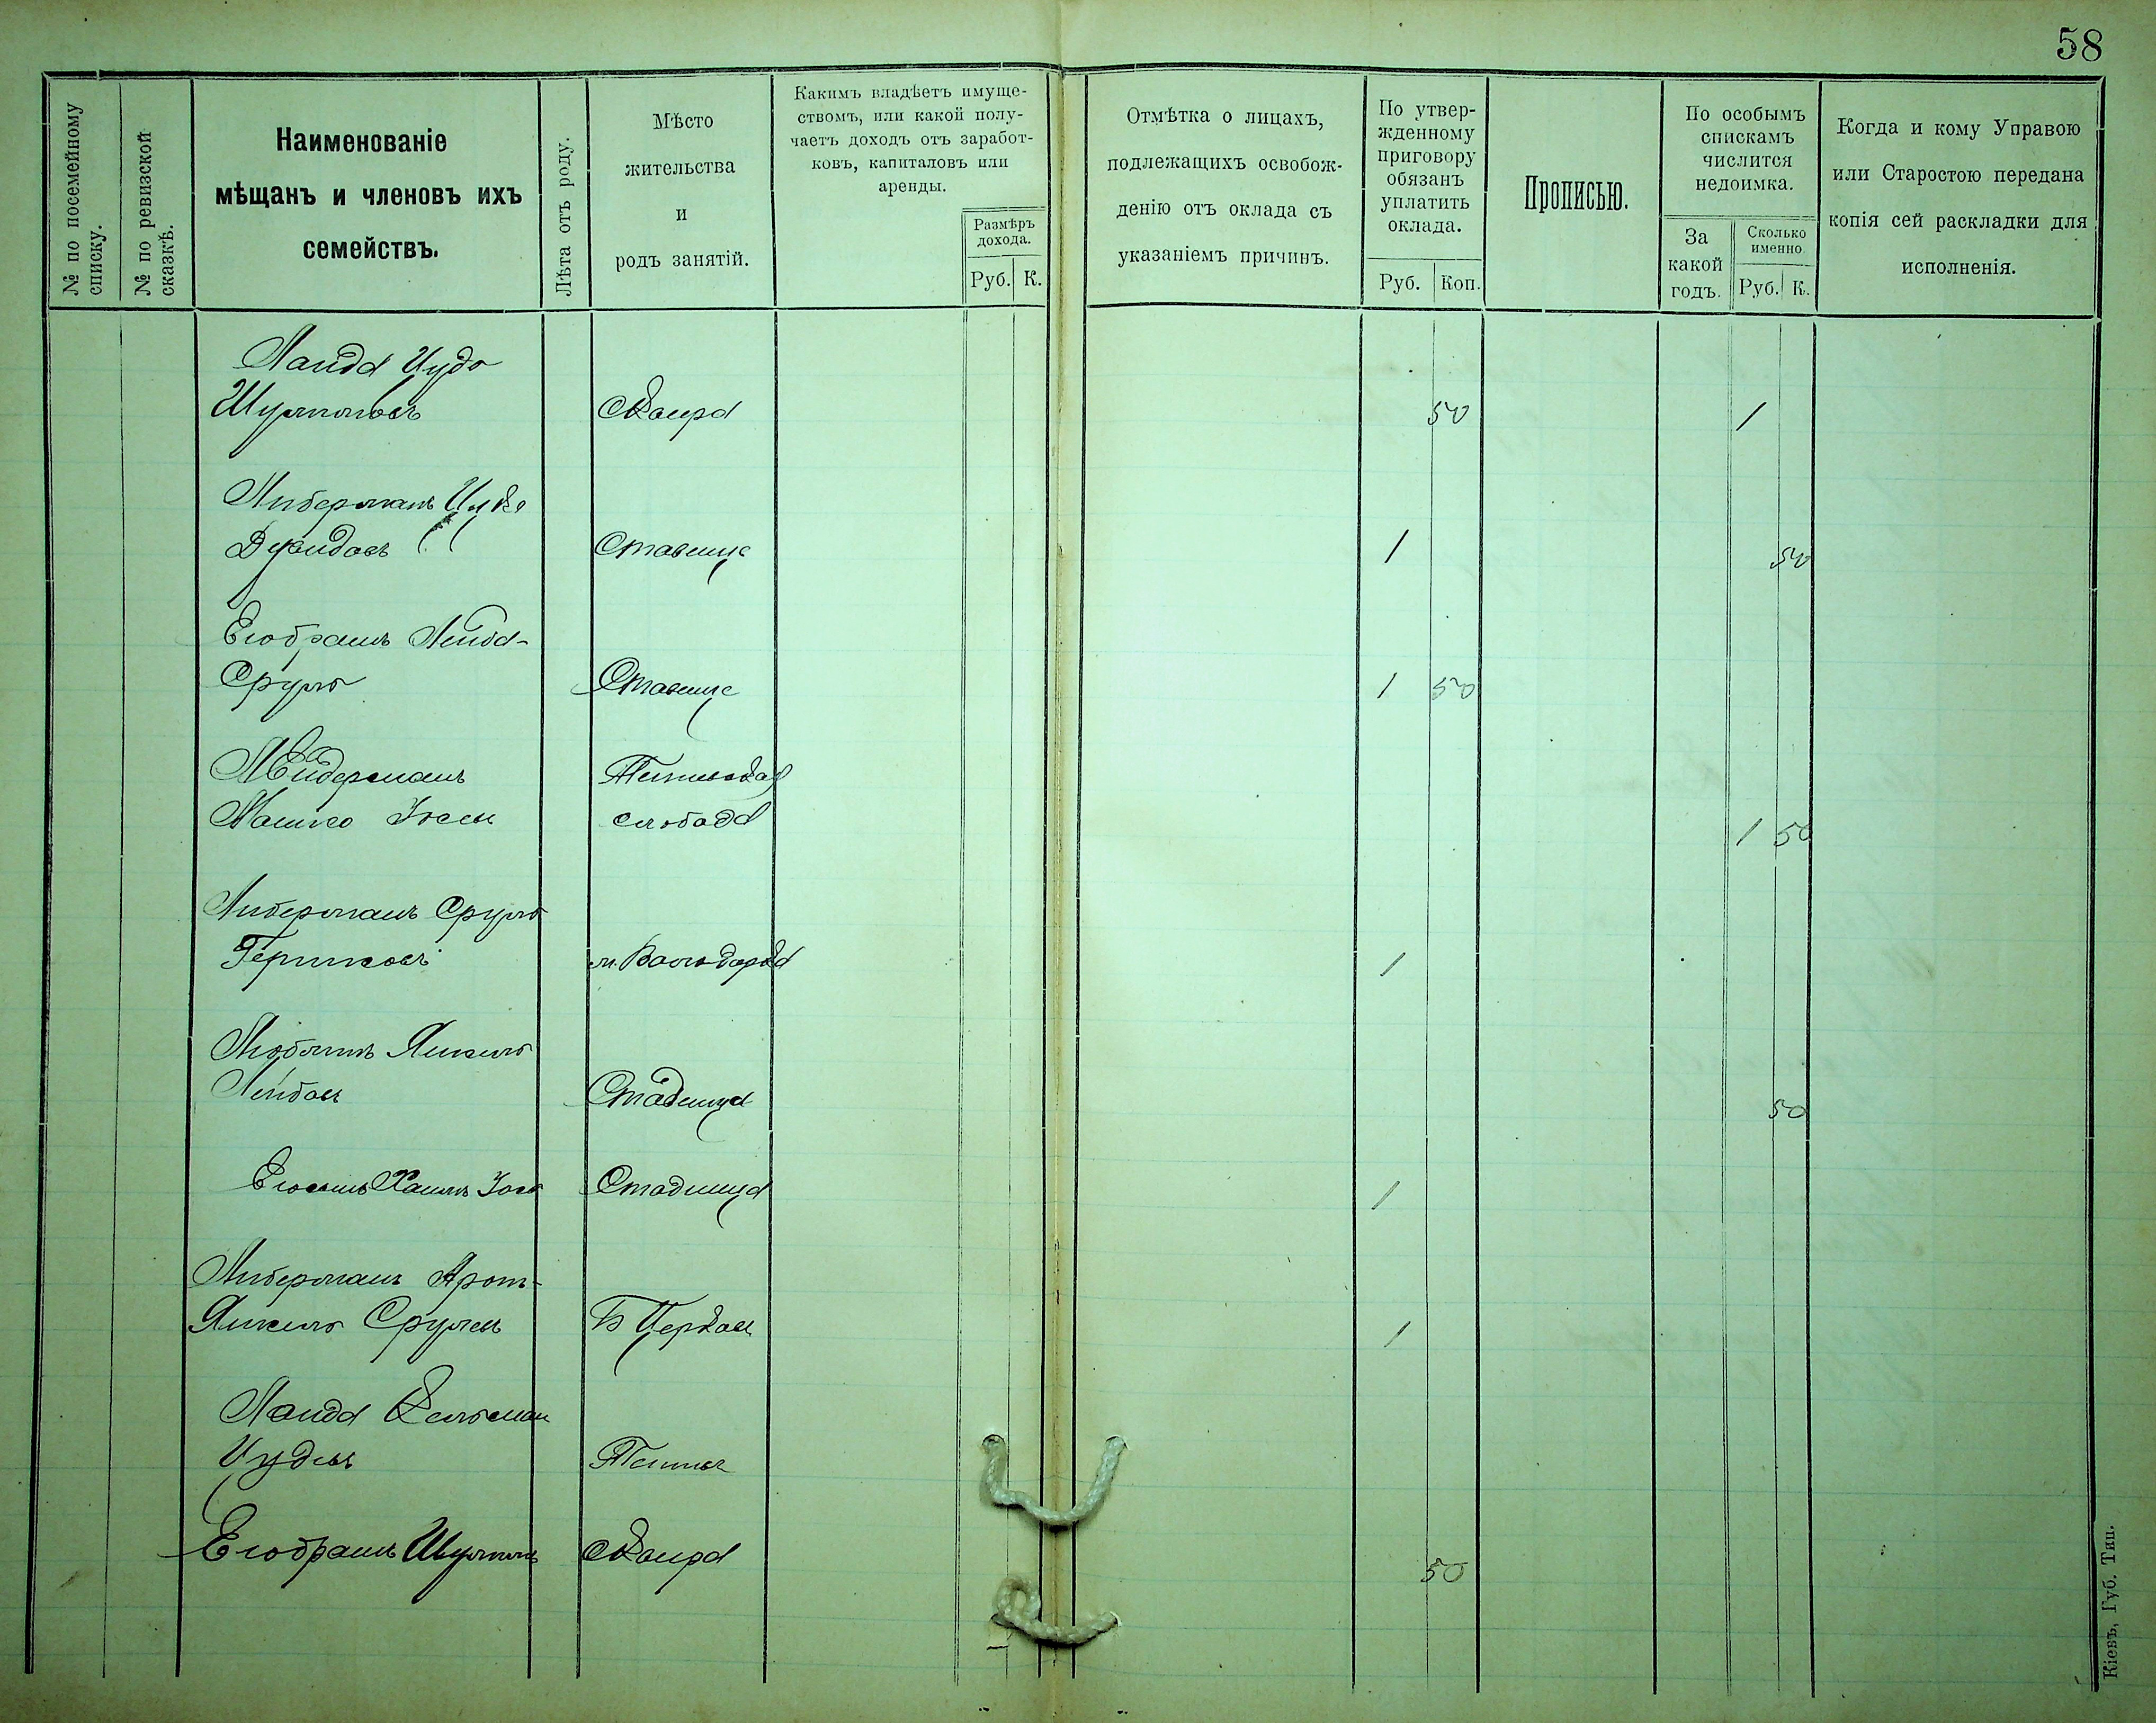 58
№ по посемейному
списку.
№ по ревизской
сказкѣ.
Наименованіе
мѣщанъ и членовъ ихъ
семействъ.
Лѣта отъ роду.
Мѣсто
жительства
и
родъ занятій.
Какимъ владѣетъ имуще-
ствомъ, или какой полу-
чаетъ доходъ отъ заработ-
ковъ, капиталовъ или
аренды.
Размѣръ
дохода.
Руб. К.
Отмѣтка о лицахъ,
подлежащихъ освобож-
денію отъ оклада съ
указаніемъ причинъ.
По утвер-
жденному
приговору
обязанъ
уплатить
оклада.
Руб. Коп.
Прописью.
По особымъ
спискамъ
числится
недоимка.
За
какой
годъ.
Сколько
именно.
Руб. К.
Когда и кому Управою
или Старостою передана
копія сей раскладки для
исполненія.
Ланда Иудо
Шулимовъ Сквира 50 1
Либерманъ Ицко
Давидовъ Ставище 1 50
Лейба-
Сруль Ставище 1 50
слобода 1 50
Либерманъ Сруль
Гершковъ м. Володарка 1
Янкель
Лейбов Ставища 50
Хаимъ Ставища 1
Либерманъ Аронъ-
Янкель Срулев Б Церков 1
Ланда Кельман
Иудевъ
Шулимъ Сквира 50
Кіевъ, Губ. Тип.